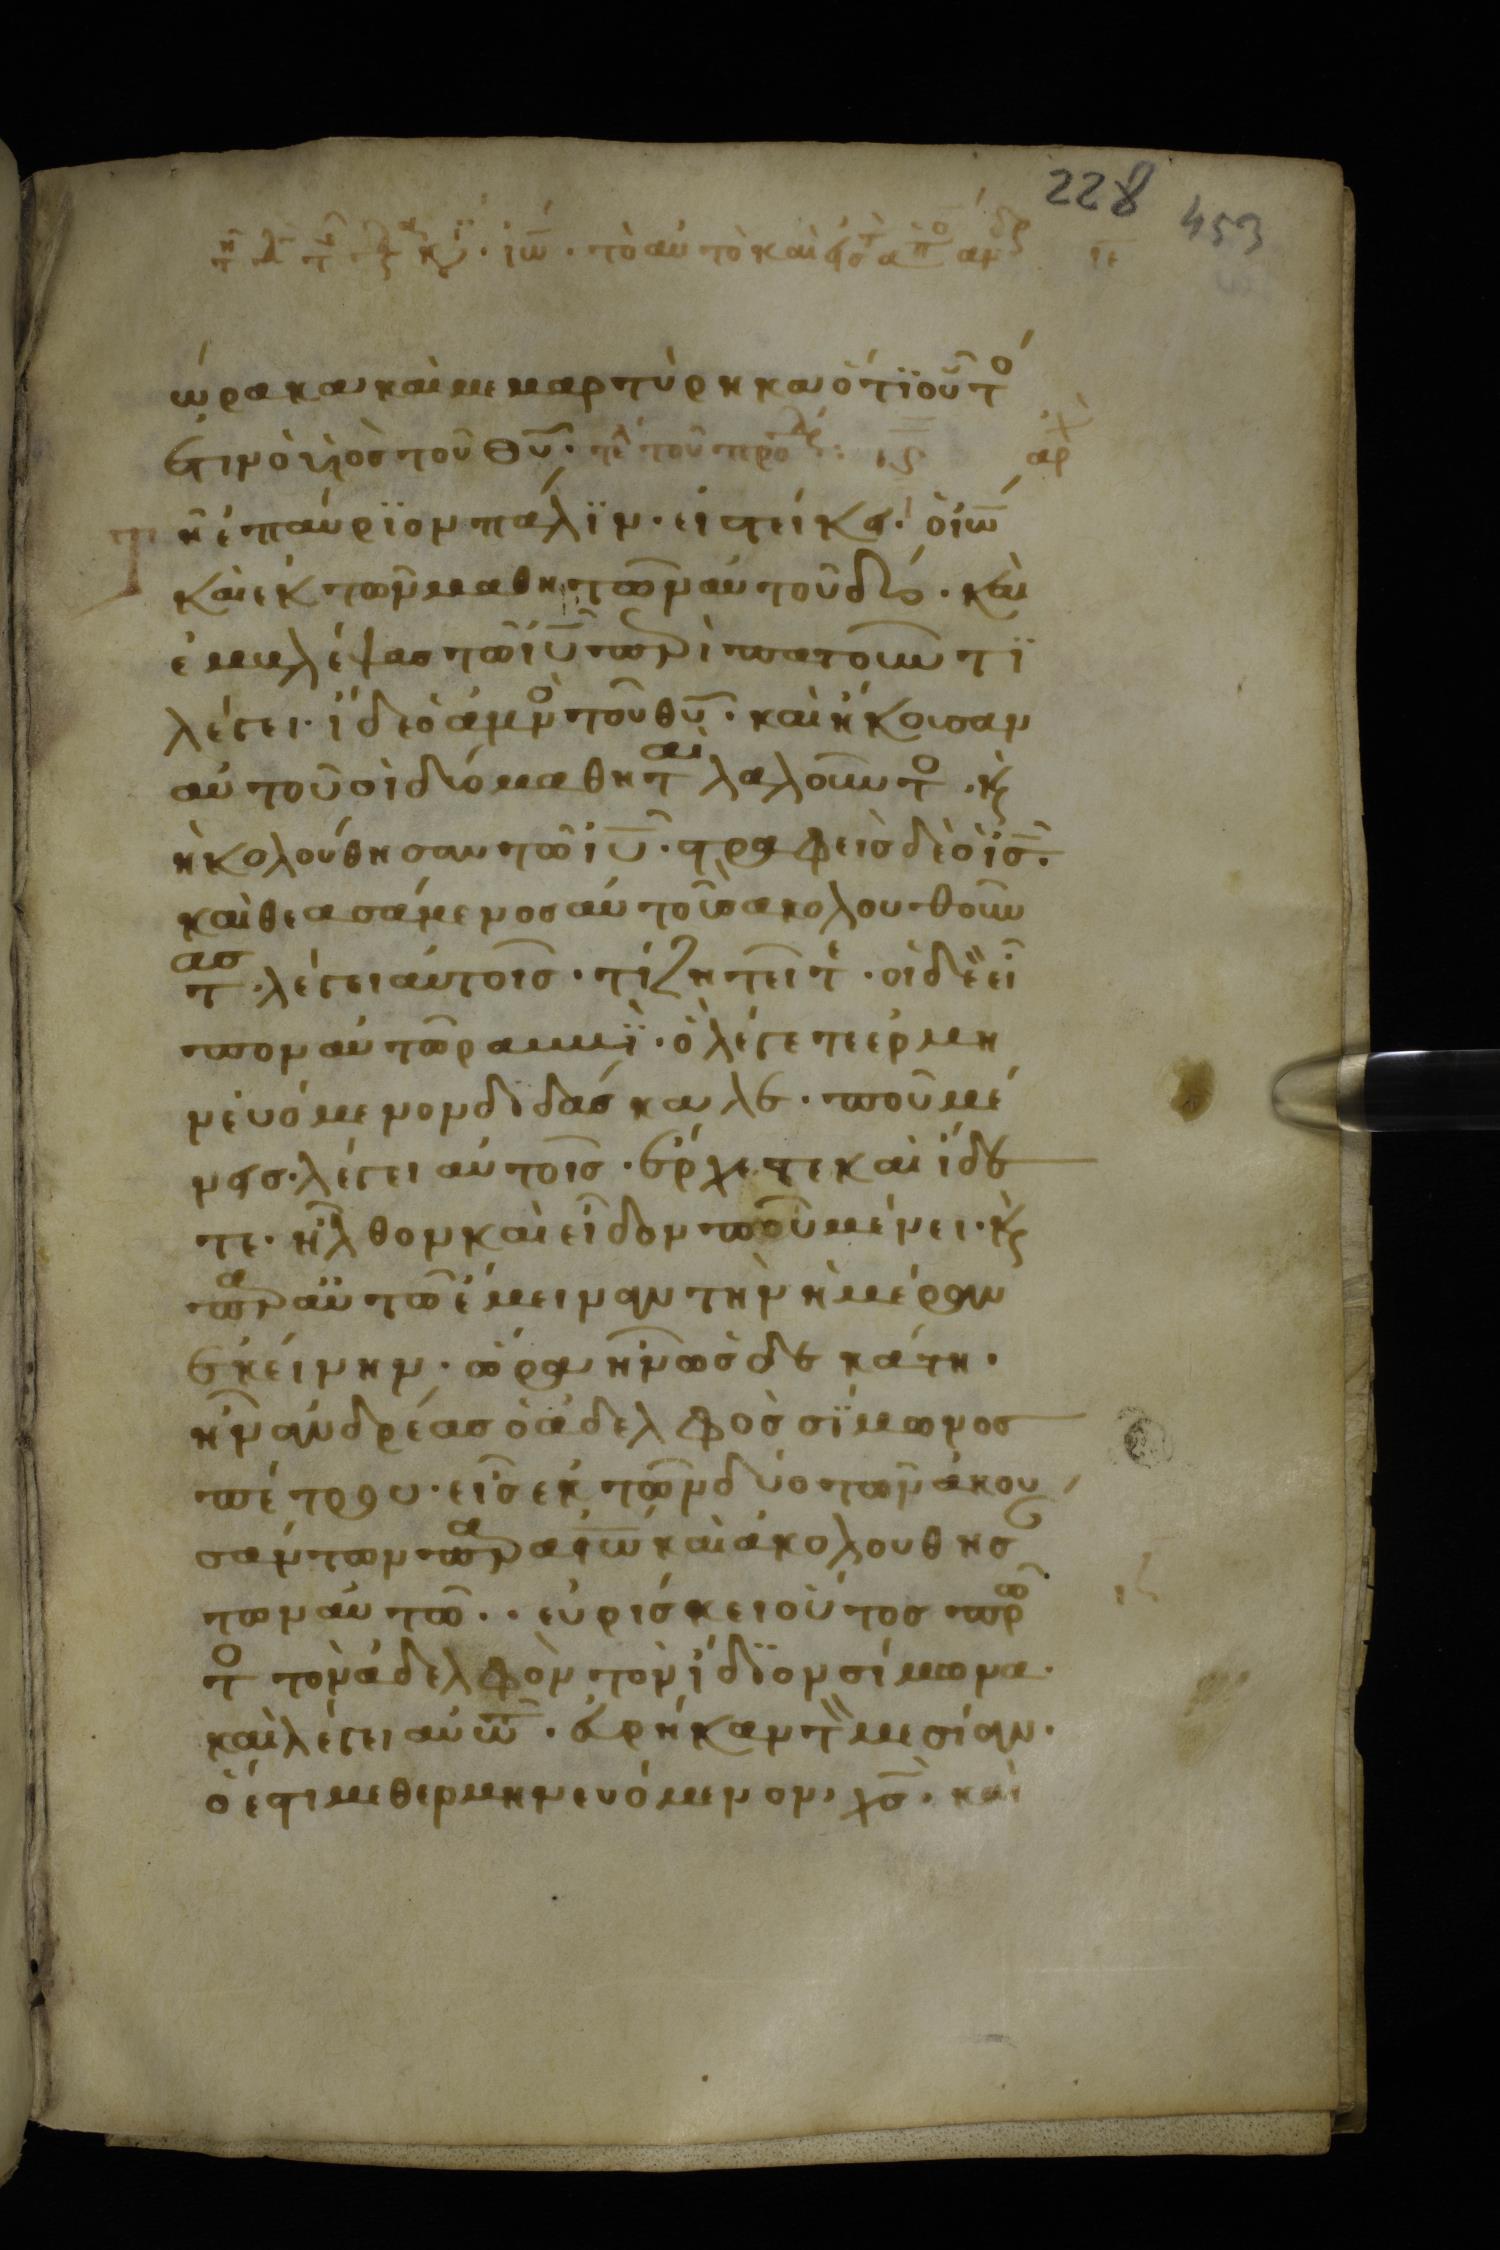 228 453
ἰω. τὸ αὐτὸ καὶ
ώρακα καὶ μεμαρτύρηκα ὅτϊ οὗτο
ἐστιν ὁ υἱὸσ τοῦ θυ. τε τοῦ προδρ: ις αρχ
Τῆ ἐπαύριον πάλϊν. εἱστείκει ὁ ἰω
καὶ ἐκ τῶν μαθητῶν αὐτοῦ δύο. καὶ
ἐμβλέψασ τῶ ἰυ περιπατοῦντϊ
λέγει. ἴδε ὁ ἀμνο τοῦ θυ. καὶ ἤκουσαν
αὐτοῦ οἱ δύο μαθηταὶ λαλοῦντο. κς
ἠκολούθησαν τῶ ἰυ. στραφεὶσ δὲ ὁ ἰσ.
καὶ θεασάμενοσ αὐτοὺσ ἀκολουθοῦν
τασ. λέγει αὐτοῖσ. τί ζητεῖτὲ. οἱ δὲ εῖ
πον αὐτῶ ραββϊ. ὃ λέγετε ἑρμη
νευόμενον διδάσκαλε. ποῦ μέ
νεισ. λέγει αὐτοῖσ. ἔρχεστε καὶ ἴδε
τε. ἦλθον καὶ εἶδον ποῦ μένει. κς
παρ αὐτῶ ἔμειναν τὴν ἡμέραν
ἐκείνην. ὥρα ἦν ὡσ δεκάτη.
ἦν ἀνδρέασ ὁ ἀδελφὸσ σϊμωνοσ
πέτρου. εἷσ ἐκ τῶν δύο τῶν ἀκου
σάντων παρα ἰω καὶ ἀκολουθησ
τωναὐτῶ.. εὑρίσκει οὗτοσ πρῶ
το τὸν ἀδελφὸν τὸν ἴδϊον σίμωνα.
καὶ λέγει αὐτω. εὑρήκαμ τὸ μεσίαν.
ὅ ἐστι μεθερμηνευόμενον, χσ. καὶ